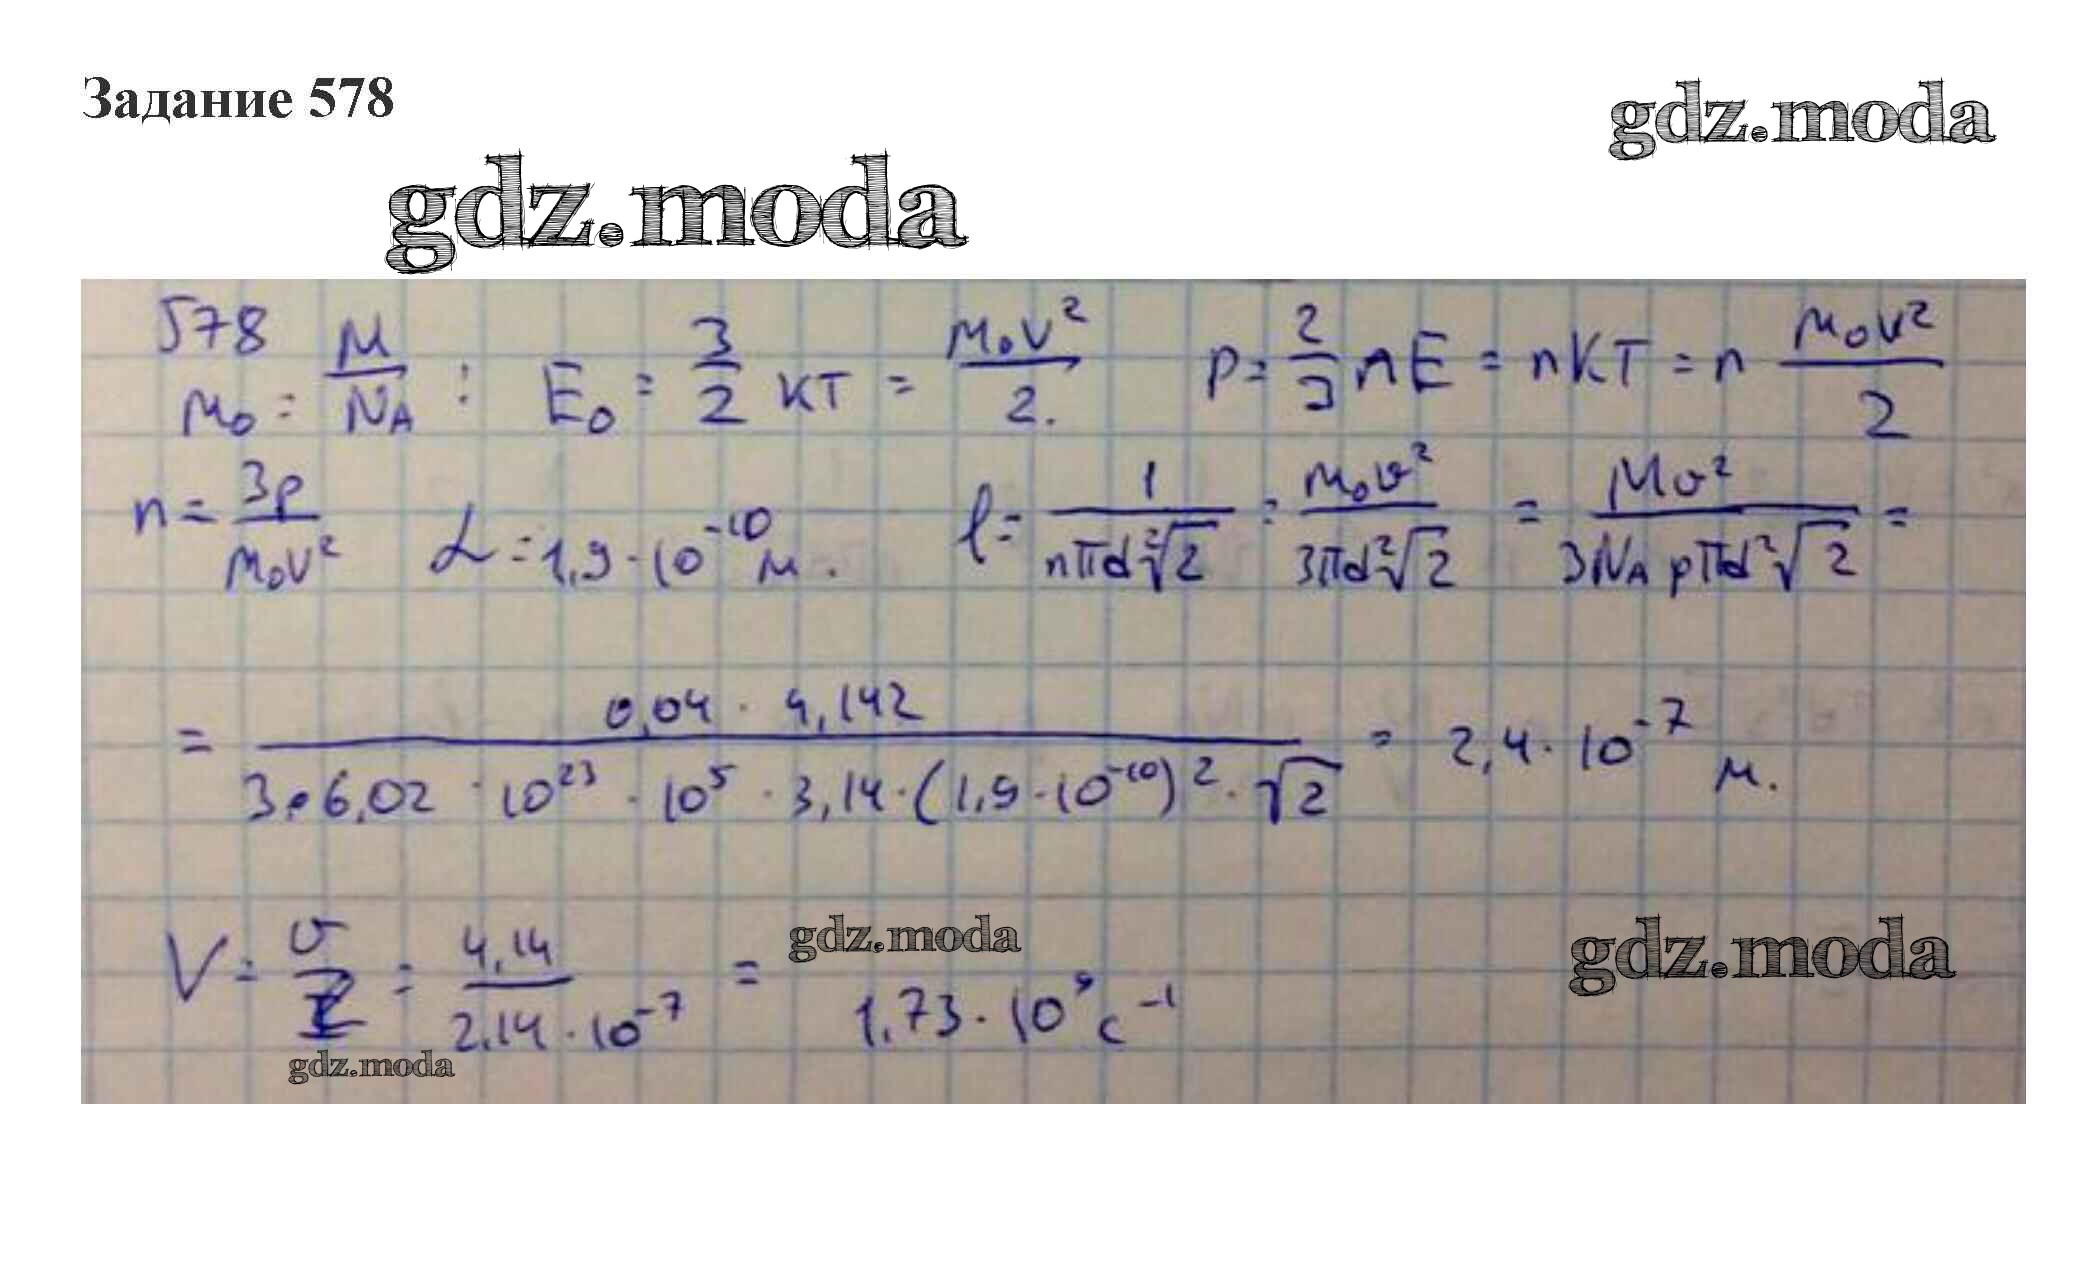 Задание 578
gdz.moda
gdz.moda
578
m₀ = M/N_A ; E₀ = 3/2 кТ = m₀v²/2. p = 2/3 nE = nкТ = n m₀v²/2
n = 3p/m₀v² d = 1,9·10⁻¹⁰ м. l = 1/nπd²√2 = m₀v²/3πd²√2 = Mv²/3N_A pπd²√2 =
= 0,04 · 4,142/3·6,02·10²³·10⁵·3,14·(1,9·10⁻¹⁰)²·√2 = 2,4·10⁻⁷ м.
gdz.moda
gdz.moda
V = v/l = 4,14/2,14·10⁻⁷ = 1,73·10⁹ c⁻¹
gdz.moda